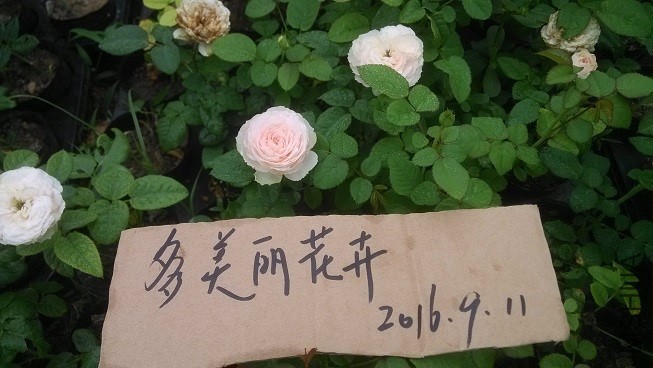 多美丽花卉
2016.9.11